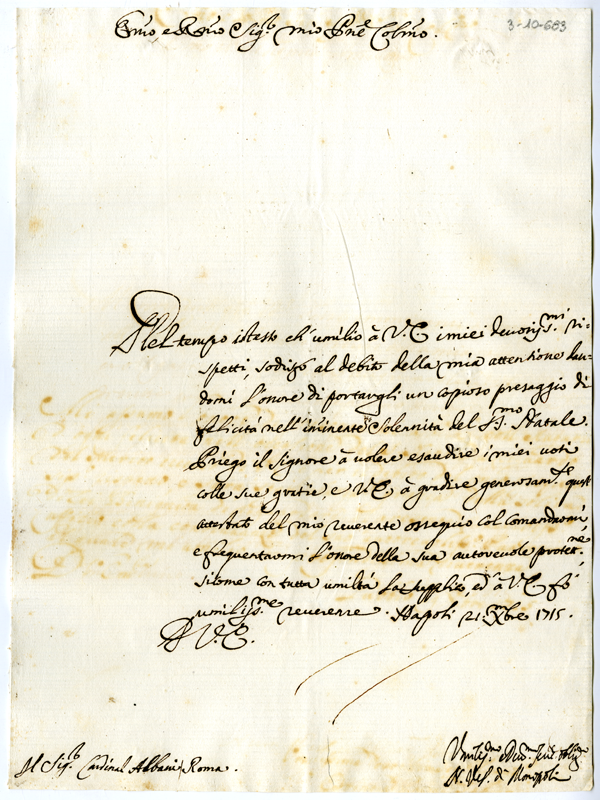 3-10-683
Em̃o, e Rm̃o Sig.r mio Pn̄e Colm̃o.
Nel tempo istesso ch'umilio à V.E. i miei devotiss.mi ri-
spetti, sodisfo al debito della mia attentione dan-
domi l'onore di portargli un copioso presaggio di
felicità nell'iminente Solennità del SS.mo Natale.
Priego il Signore à volere esaudire i miei voti
colle sue gratie, e V.E. à gradire generosam.te questi
attestati del mio reverente ossequio col comandarmi,
e frequentarmi l'onore della sua autorevole protett.ne,
siccome con tutta umiltà la supplico, ed à V.E. fò
umiliss.me reverenze. Napoli 21. Xmbre 1715.
D V.E.
Sig.r Cardinal Albani Roma.
Umiliss.mo e Dev.mo
N. Ves. di Monopoli